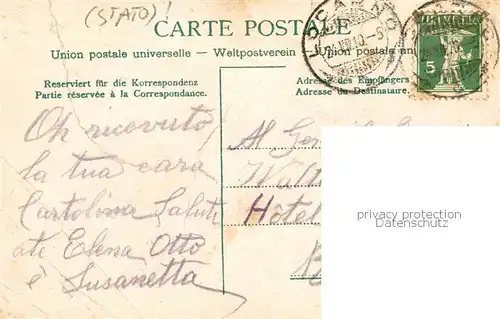 (STATO)!
CARTE POSTALE
Union postale universelle — Weltpostverein Unione postale un
LOCARNO
HELVETIA
5
Reserviert für die Korrespondenz
Partie réservée à la Correspondance.
Adresse des Empfängers
Adresse du Destinataire.
Oh ricevuto
la tua cara
Cartolina Saluti
Elena Otto
è Susanetta
Al
Hôtel
privacy protection
Datenschutz